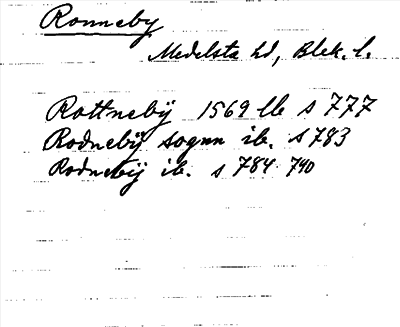 Ronneby
Medelsta hd, Blek. l.
Rottnebÿ 1569 lb s 777
Rodnebÿ sognn ib. s 783
Rodnebij ib. s 784 790